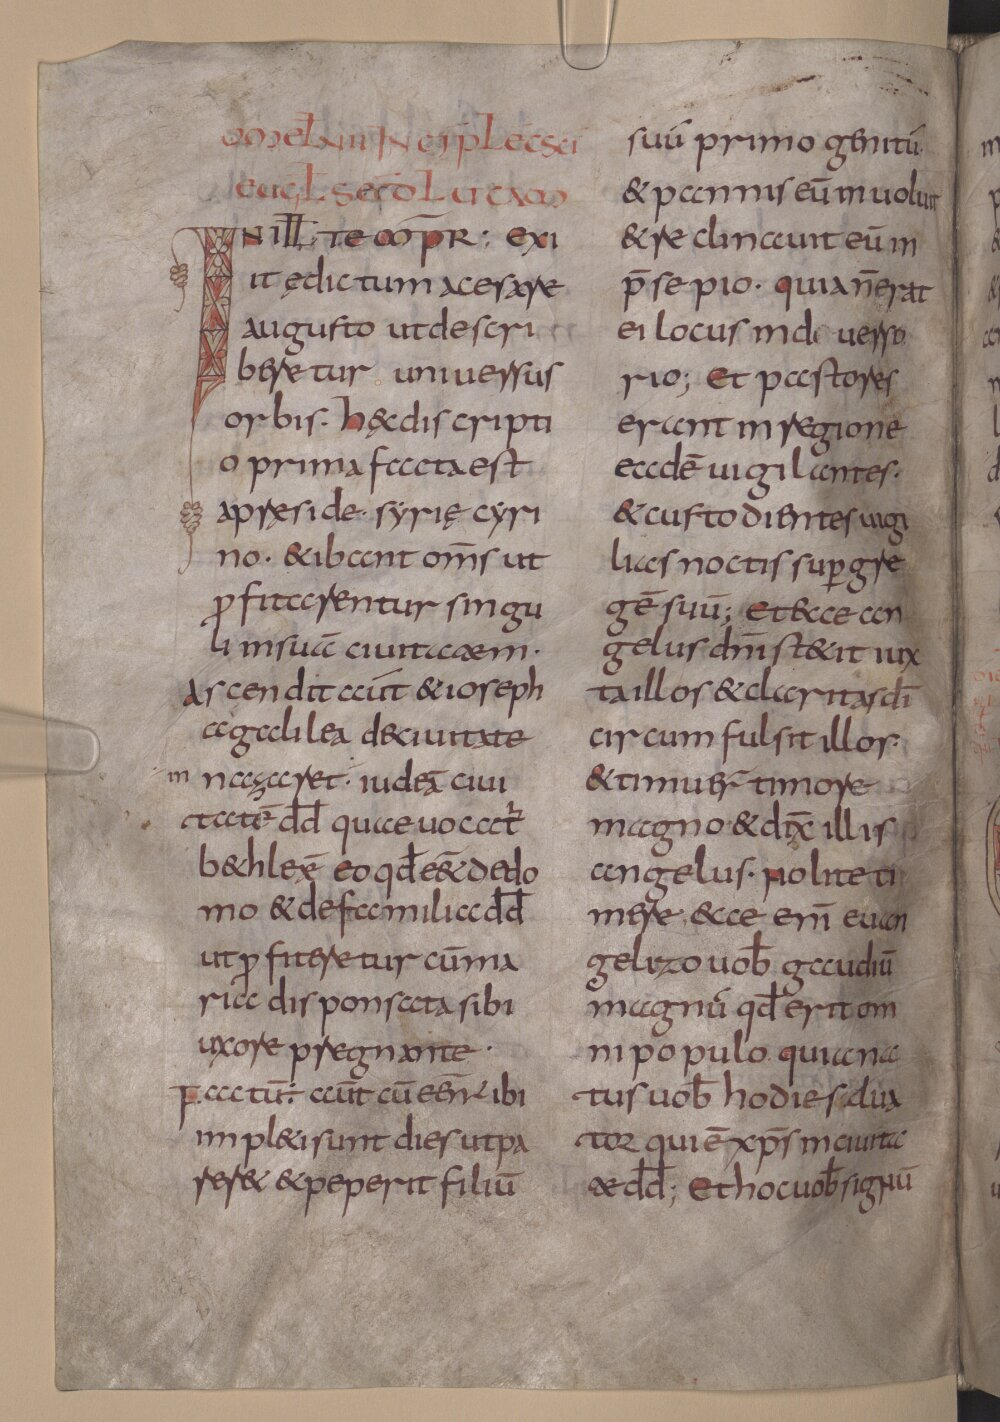 omel̄ VIII INcip̄ Lec sc̄i
euḡl secd̄ Lucam
IN ILL̄ Tempr̄: exi
it edictum a cesare
augusto ut descri
beretur universus
orbis. hęc discripti
o prima facta est
apreside. syrię cyri
no. & ibant om̄s ut
ꝓfiterentur singu
li insuā civitatem.
Ascendit aūt & ioseph
agalilea decivitate
in nazaret. iudeā civi
tatē dd̄ quae vocat̄
b&hleē eo qd̄ eēt dedo
mo & defamilia dd̄
ut ꝓfiteretur cūma
ria disponsata sibi
uxore pregnante.
Factū: aūt cū eēnt ibi
impl&i sunt dies utpa
rer& & peperit filiū
suū primogenitū.
& pannis eū involuit
& reclinavit eū in
p̄sepio. quia n̄ erat
ei locus in di verso
rio; Et pastores
erant in regione
eadē vigilantes.
& custodientes vigi
lias noctis sup gre
gē suū; Et ecce an
gelus dn̄i st&it iux
ta illos & claritas dī
circumfulsit illos.
& timuer̄ timore
magno & dix̄ illis
angelus. nolite ti
mere. ecce enī evan
gelizo vob̄ gaudiū
magnū qd̄ erit om
ni populo. quia na
tus vob̄ hodie salva
tor qui ē xp̄s in civita
te dd̄; Et hoc vob̄ signū